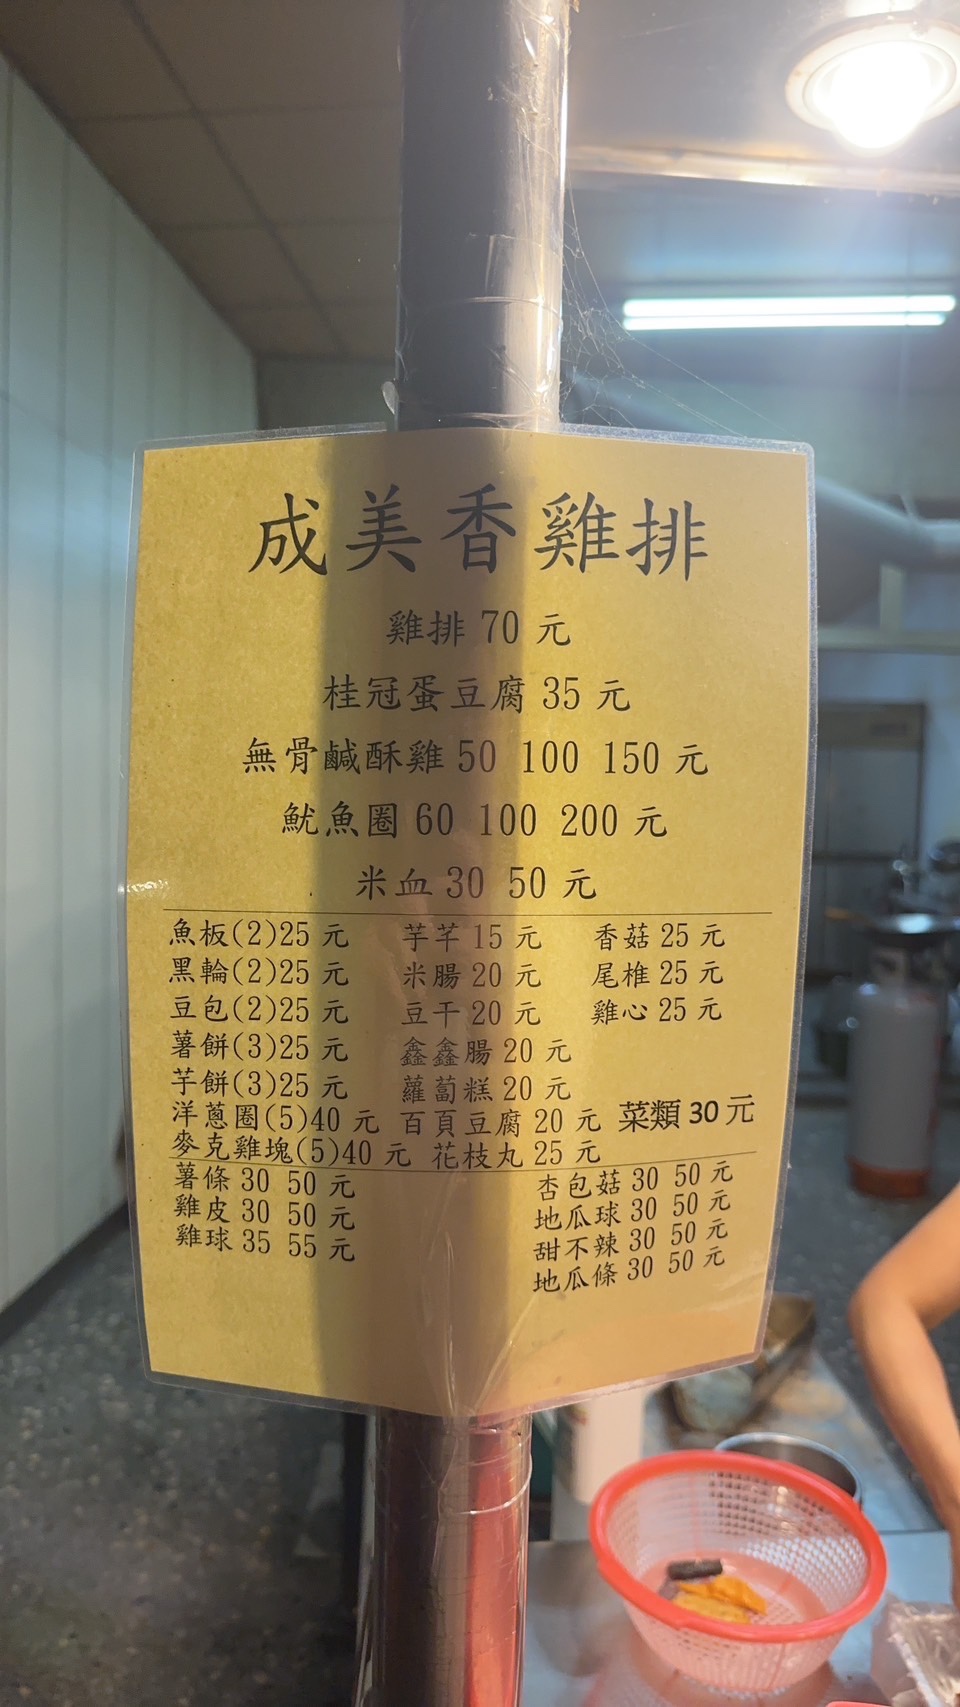 成美香雞排
雞排 70 元
桂冠蛋豆腐 35 元
無骨鹹酥雞 50 100 150 元
魷魚圈 60 100 200 元
米血 30 50 元
魚板(2)25 元 芋芊 15 元 香菇 25 元
黑輪(2)25 元 米腸 20 元 尾椎 25 元
豆包(2)25 元 豆干 20 元 雞心 25 元
薯餅(3)25 元 鑫鑫腸 20 元
芋餅(3)25 元 蘿蔔糕 20 元
洋蔥圈(5)40 元 百頁豆腐 20 元 菜類 30 元
麥克雞塊(5)40 元 花枝丸 25 元
薯條 30 50 元 杏包菇 30 50 元
雞皮 30 50 元 地瓜球 30 50 元
雞球 35 55 元 甜不辣 30 50 元
地瓜條 30 50 元